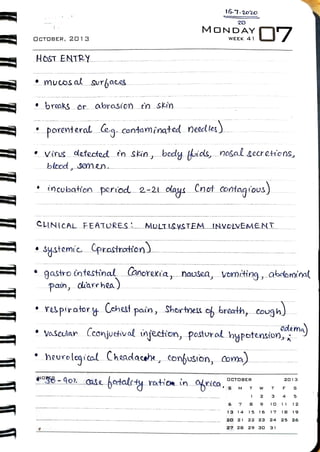 15-7-2020
20
MONDAY 07
OCTOBER, 2013 WEEK 41
HOST ENTRY
• mucosal surfaces
• breaks or abrasion in skin
• parenteral (eg. contaminated needles)
• virus detected in skin, body fluids, nasal secretions,
blood, semen.
• incubation period 2-21 days (not contagious)
CLINICAL FEATURES: MULTISYSTEM INVOLVEMENT
• systemic (prostration)
• gastro intestinal (anorexia, nausea, vomiting, abdominal
pain, diarrhea)
• respiratory (chest pain, shortness of breath, cough)
• vascular (conjuctival injection, postural hypotension, edema)
• neurological (headache, confusion, coma)
-90% case fatality ratio in africa.
OCTOBER 2013
S M T W T F S
1 2 3 4 5
6 7 8 9 10 11 12
13 14 15 16 17 18 19
20 21 22 23 24 25 26
27 28 29 30 31